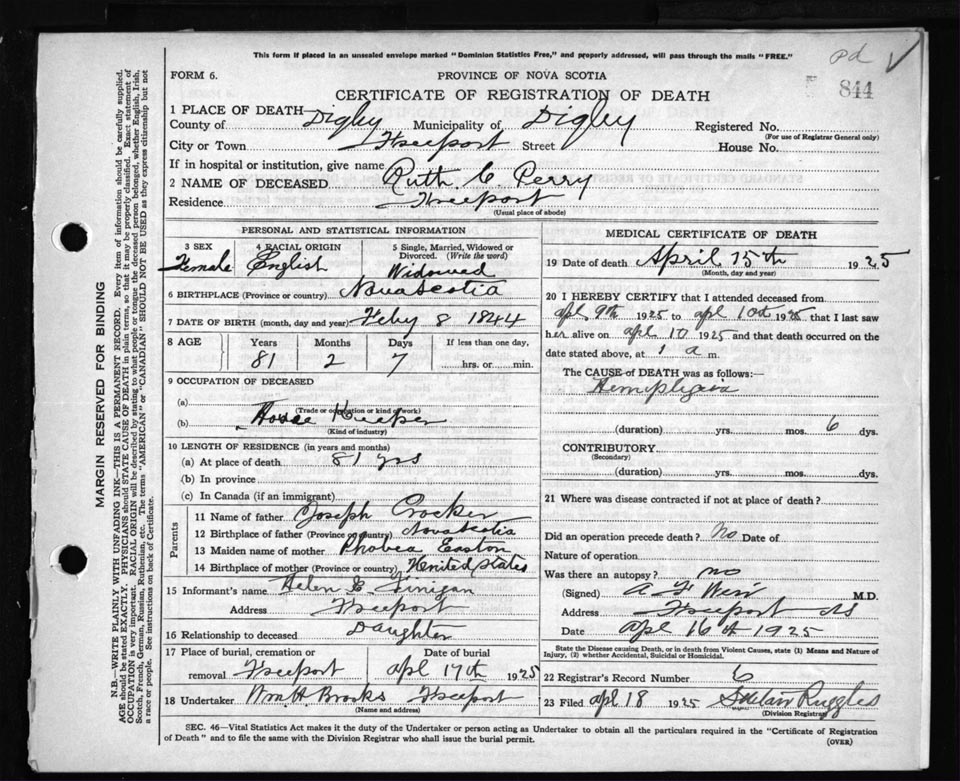 This form if placed in an unsealed envelope marked "Dominion Statistics Free," and properly addressed, will pass through the mails "FREE."
pd
FORM 6.
PROVINCE OF NOVA SCOTIA
844
CERTIFICATE OF REGISTRATION OF DEATH
1 PLACE OF DEATH
County of Digby Municipality of Digby Registered No.
(For use of Registrar General only)
City or Town Freeport Street House No.
If in hospital or institution, give name
2 NAME OF DECEASED Ruth. C Perry
Residence Freeport
(Usual place of abode)
PERSONAL AND STATISTICAL INFORMATION
3 SEX 4 RACIAL ORIGIN 5 Single, Married, Widowed or Divorced. (Write the word)
Female English Widowed
6 BIRTHPLACE (Province or country) Nova Scotia
7 DATE OF BIRTH (month, day and year) Feby 8 1844
8 AGE Years Months Days If less than one day,
81 2 7 hrs. or min.
9 OCCUPATION OF DECEASED
(a)
(Trade or occupation or kind of work)
(b) House Keeper
(Kind of industry)
10 LENGTH OF RESIDENCE (in years and months)
(a) At place of death 81 yrs
(b) In province
(c) In Canada (if an immigrant)
Parents
11 Name of father Joseph Crocker
12 Birthplace of father (Province or country) Nova Scotia
13 Maiden name of mother Phobea Easton
14 Birthplace of mother (Province or country) United States
15 Informant's name Helen E. Finigan
Address Freeport
16 Relationship to deceased Daughter
17 Place of burial, cremation or removal Freeport Date of burial Apl 17th 1925
18 Undertaker Wm H Brooks Freeport
(Name and address)
MEDICAL CERTIFICATE OF DEATH
19 Date of death April 15th 1925
(Month, day and year)
20 I HEREBY CERTIFY that I attended deceased from
apl 9th 1925 to apl 1925 that I last saw
her alive on apl 10 1925 and that death occurred on the
date stated above, at 1 a m.
The CAUSE of DEATH was as follows:—
Hemiplegia
(duration) yrs. mos. 6 dys.
CONTRIBUTORY
(Secondary)
(duration) yrs. mos. dys.
21 Where was disease contracted if not at place of death?
Did an operation precede death? No Date of
Nature of operation
Was there an autopsy? no
(Signed) A F Weir M.D.
Address Freeport NS
Date apl 16th 1925
State the Disease causing Death, or in death from Violent Causes, state (1) Means and Nature of
Injury, (2) whether Accidental, Suicidal or Homicidal.
22 Registrar's Record Number 6
23 Filed apl 18 1925 Ruggles
(Division Registrar)
SEC. 46—Vital Statistics Act makes it the duty of the Undertaker or person acting as Undertaker to obtain all the particulars required in the "Certificate of Registration
of Death" and to file the same with the Division Registrar who shall issue the burial permit.
(OVER)
MARGIN RESERVED FOR BINDING
N.B.—WRITE PLAINLY WITH UNFADING INK—THIS IS A PERMANENT RECORD. Every item of information should be carefully supplied.
AGE should be stated EXACTLY. PHYSICIANS should STATE CAUSE OF DEATH in plain terms, so that it may be properly classified. Exact statement of
OCCUPATION is very important. RACIAL ORIGIN will be described by stating to what people or tongue the deceased person belonged, whether English, Irish,
Scotch, French, German, Russian, Ruthenian, etc. The terms "AMERICAN" or "CANADIAN" SHOULD NOT BE USED as they express citizenship but not
a race or people. See instructions on back of Certificate.